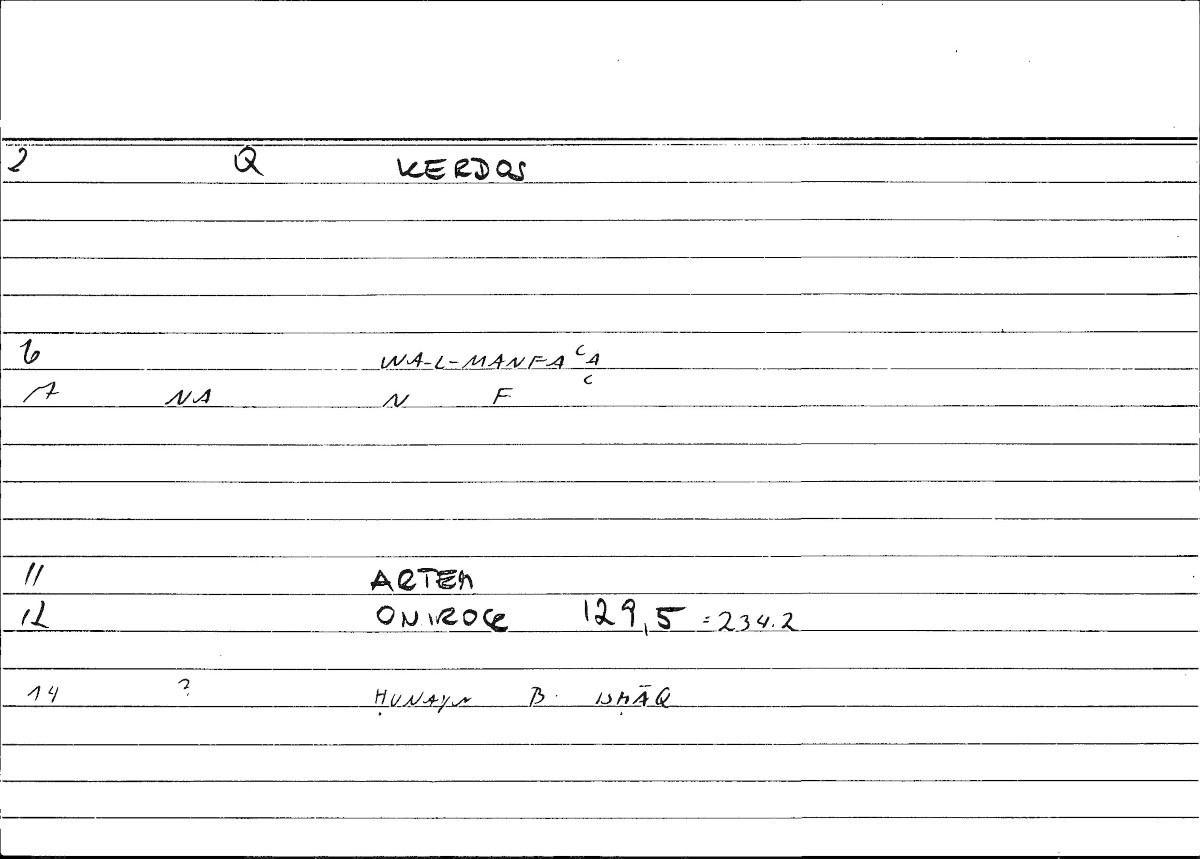 2 Q KERDOS
6 WA-L-MANFAʿA
7 NA N F ʿ
11 ARTEM
12 ONIROCR 129,5 =234.2
14 ? ḤUNAYN B. ISḤĀQ